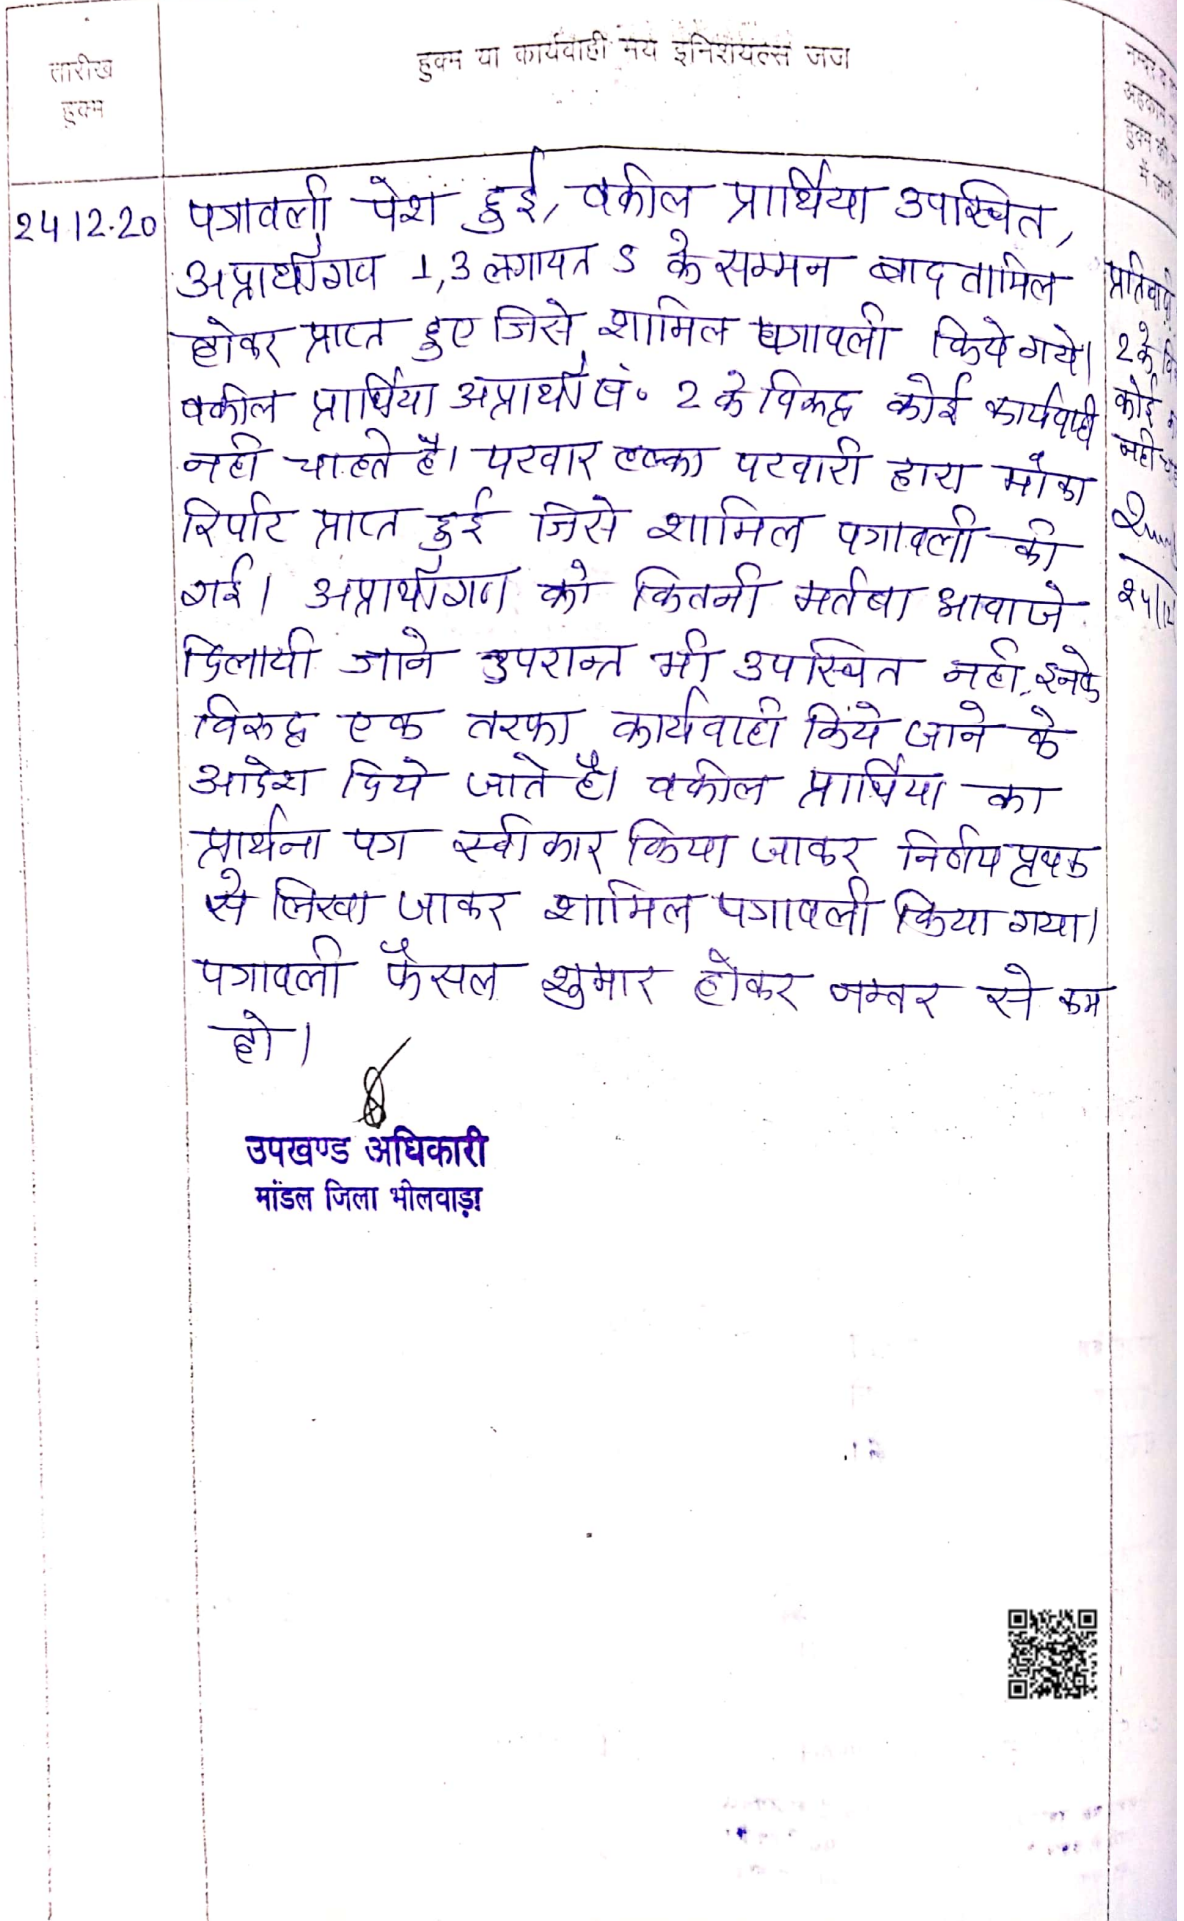 तारीख
हुक्म
हुक्म या कार्यवाही मय इनिशियल्स जज
अहकाम
हुक्म की
में
24.12.20
पत्रावली पेश हुई, वकील प्रार्थिया उपस्थित,
अप्रार्थीगण 1,3 लगायत 5 के सम्मन बाद तामिल
होकर प्राप्त हुए जिसे शामिल पत्रावली किये गये।
वकील प्रार्थिया अप्रार्थी सं. 2 के विरूद्ध कोई कार्यवाही
नही चाहते है। पटवार हल्का पटवारी द्वारा मौका
रिर्पोट प्राप्त हुई जिसे शामिल पत्रावली की
गई। अप्रार्थीगण को कितनी मर्तबा आवाजे
दिलायी जाने उपरान्त भी उपस्थित नही, इनके
विरूद्ध एक तरफा कार्यवाही किये जाने के
आदेश दिये जाते है। वकील प्रार्थिया का
प्रार्थना पत्र स्वीकार किया जाकर निर्णय पृथक
से लिखा जाकर शामिल पत्रावली किया गया।
पत्रावली फैसल शुमार होकर नम्बर से कम
हो।
उपखण्ड अधिकारी
मांडल जिला भीलवाड़ा
2 के
कोई
नही
24/12